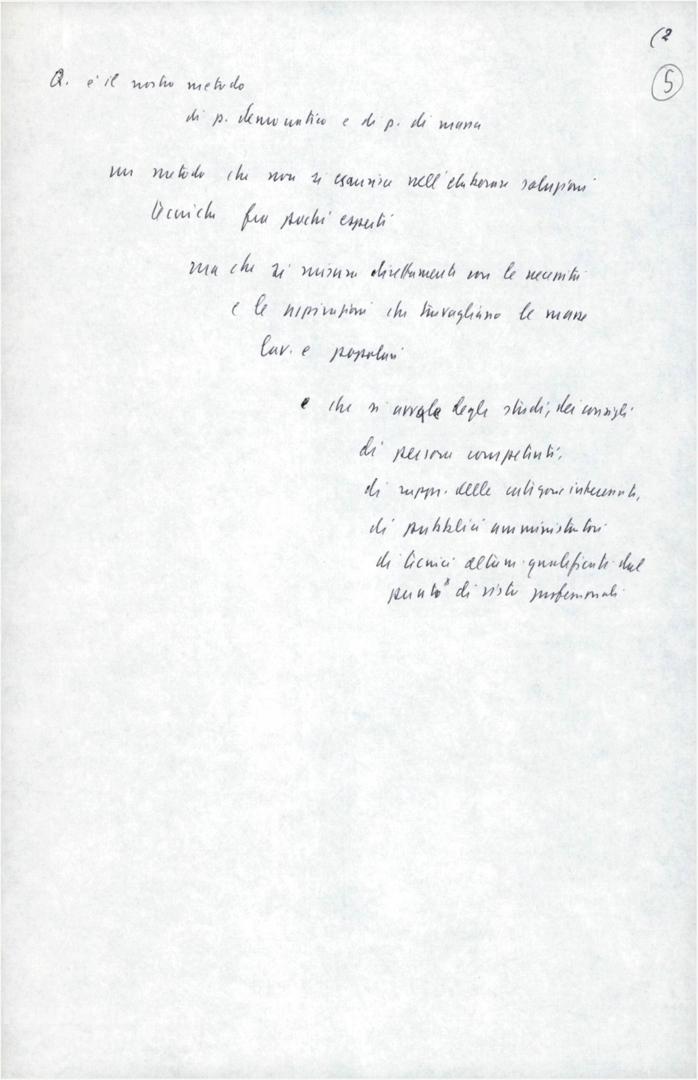 (2
5
Q. è il nostro metodo
di p. democratico e di p. di massa
un metodo che non si esaurisce nell'elaborare soluzioni
tecniche fra pochi esperti
ma che si misura direttamente con le necessità
e le aspirazioni che travagliano le masse
lav. e popolari
e che si avvale degli studi, dei consigli
di persone competenti,
di rappr. delle categorie interessate,
di pubblici amministratori
di tecnici altam. qualificati dal
punto di vista professionale